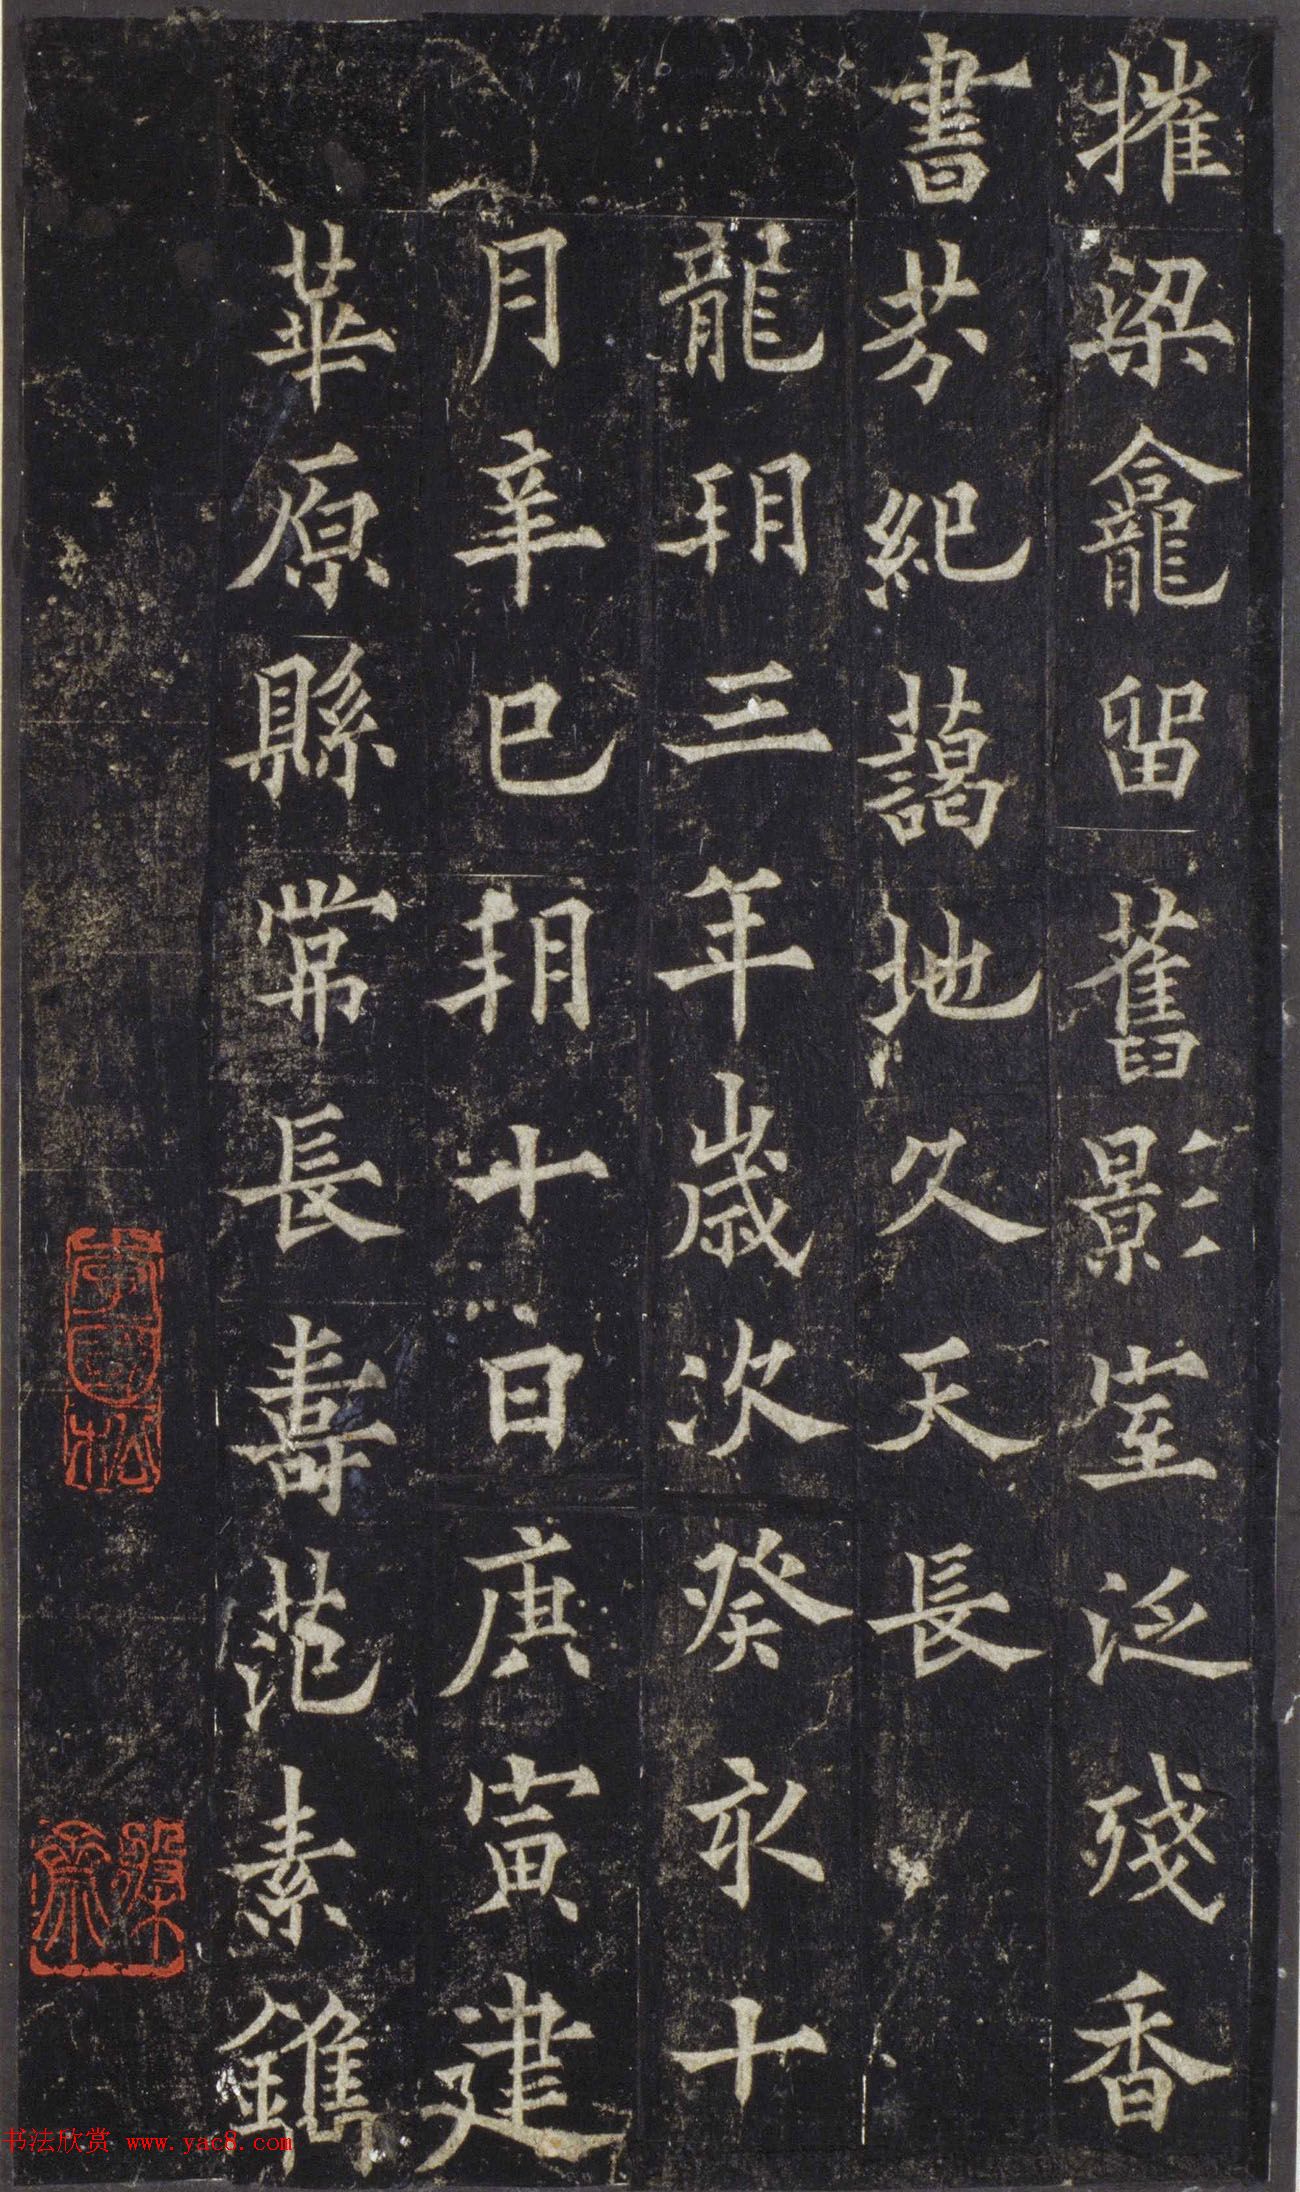 摧梁龕留舊影室泛殘香
書芬紀藹地久天長
龍朔三年歲次癸亥十
月辛巳朔十日庚寅建
華原縣常長壽范素鐫
李國松
書法欣赏 www.yac8.com